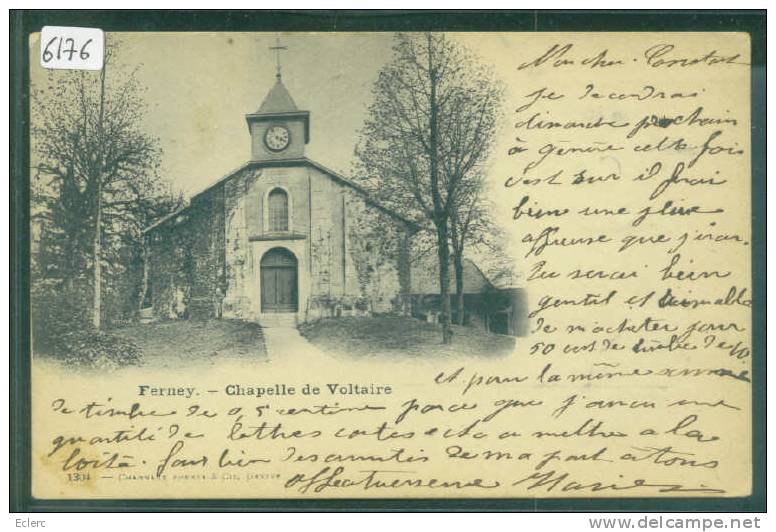 6176
Mon cher Constant
Je descendrai
dimanche prochain
à Genève cette fois
c'est sur il ferai
bien une pluie
affreuse que j'irai.
Tu serais bien
gentil et aimable
de m'acheter pour
50 cent de timbre de 10
Ferney. – Chapelle de Voltaire
et pour la même somme
de timbre de 0,5 centime parce que j'aurai une
quantité de lettres cartes etc a mettre a la
boîte. Fais bien des amitiés de ma part a tous
1304 — Charnaux Frères & Co, Genève
Affectueusement Marie
Eclerc
www.delcampe.net